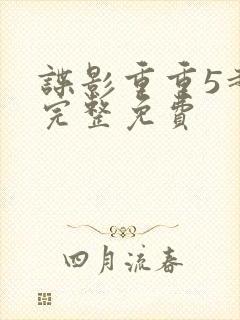 諜影重重5
完整免費
四月流春